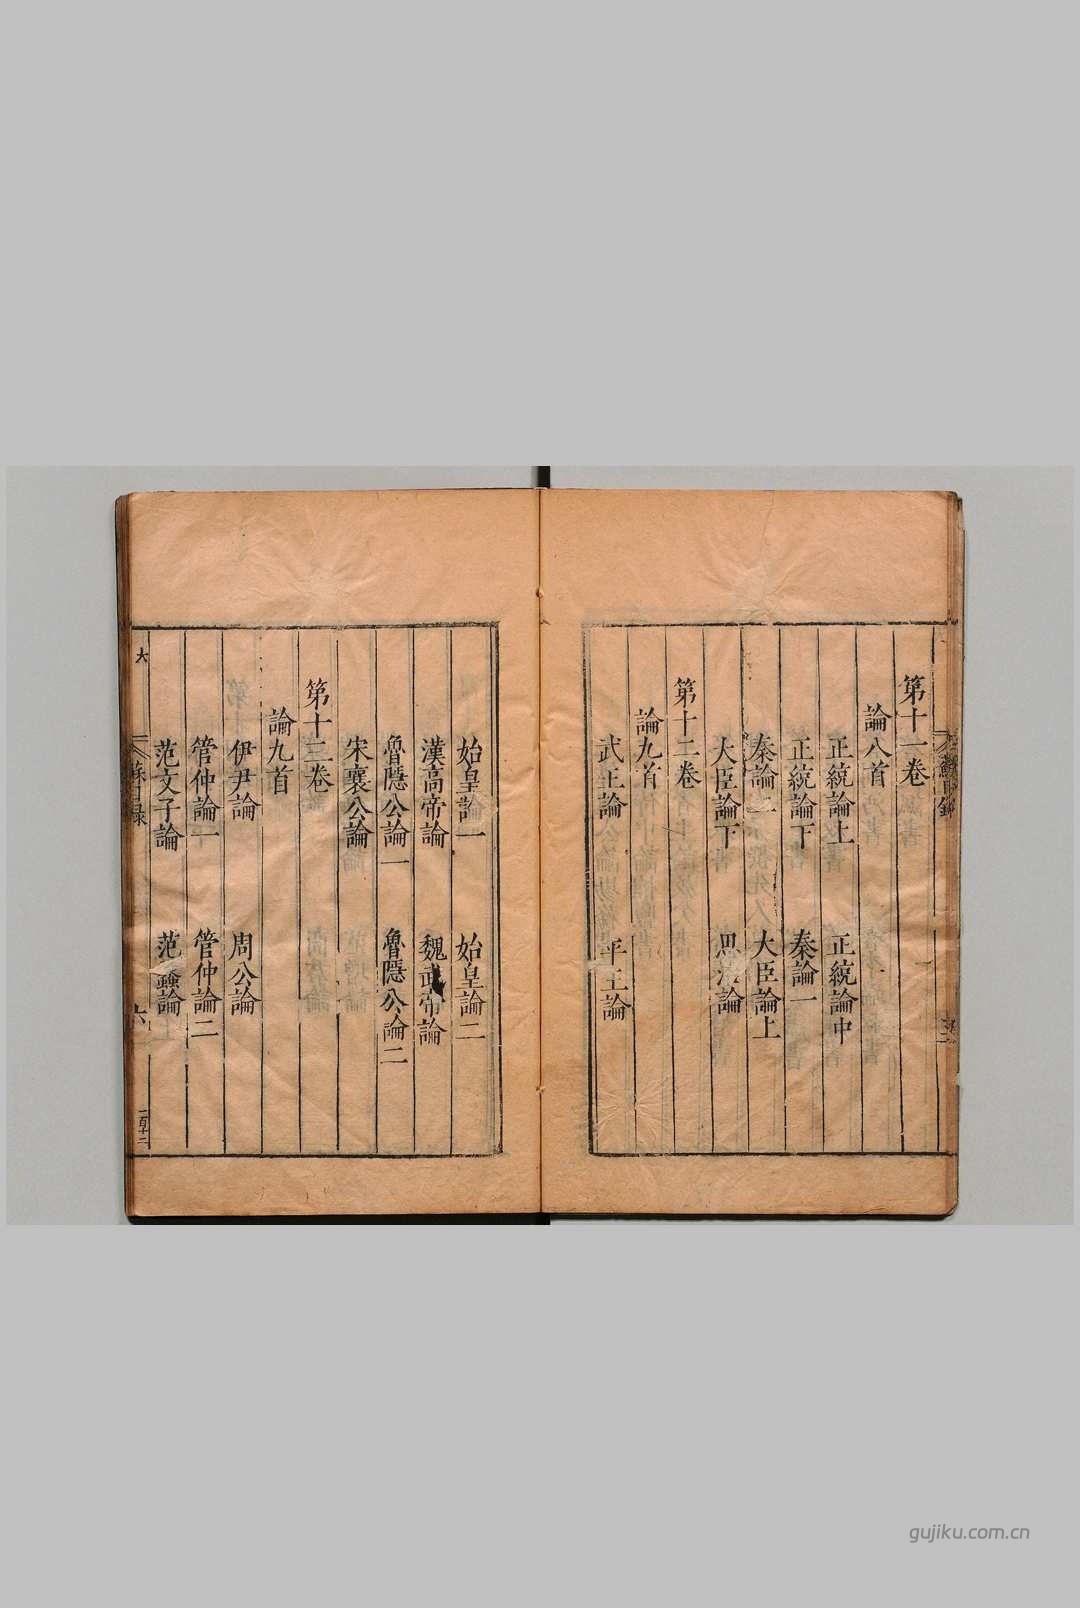 第十一卷
論八首
正統論上　正統論中
正統論下　秦論一
秦論二　大臣論上
大臣論下　思治論
第十二卷
論九首
武王論　平王論
始皇論一　始皇論二
漢高帝論　魏武帝論
魯隱公論一　魯隱公論二
宋襄公論
第十三卷
論九首
伊尹論　周公論
管仲論一　管仲論二
范文子論　范蠡論
大
蘇目録
六
一百十二
gujiku.com.cn